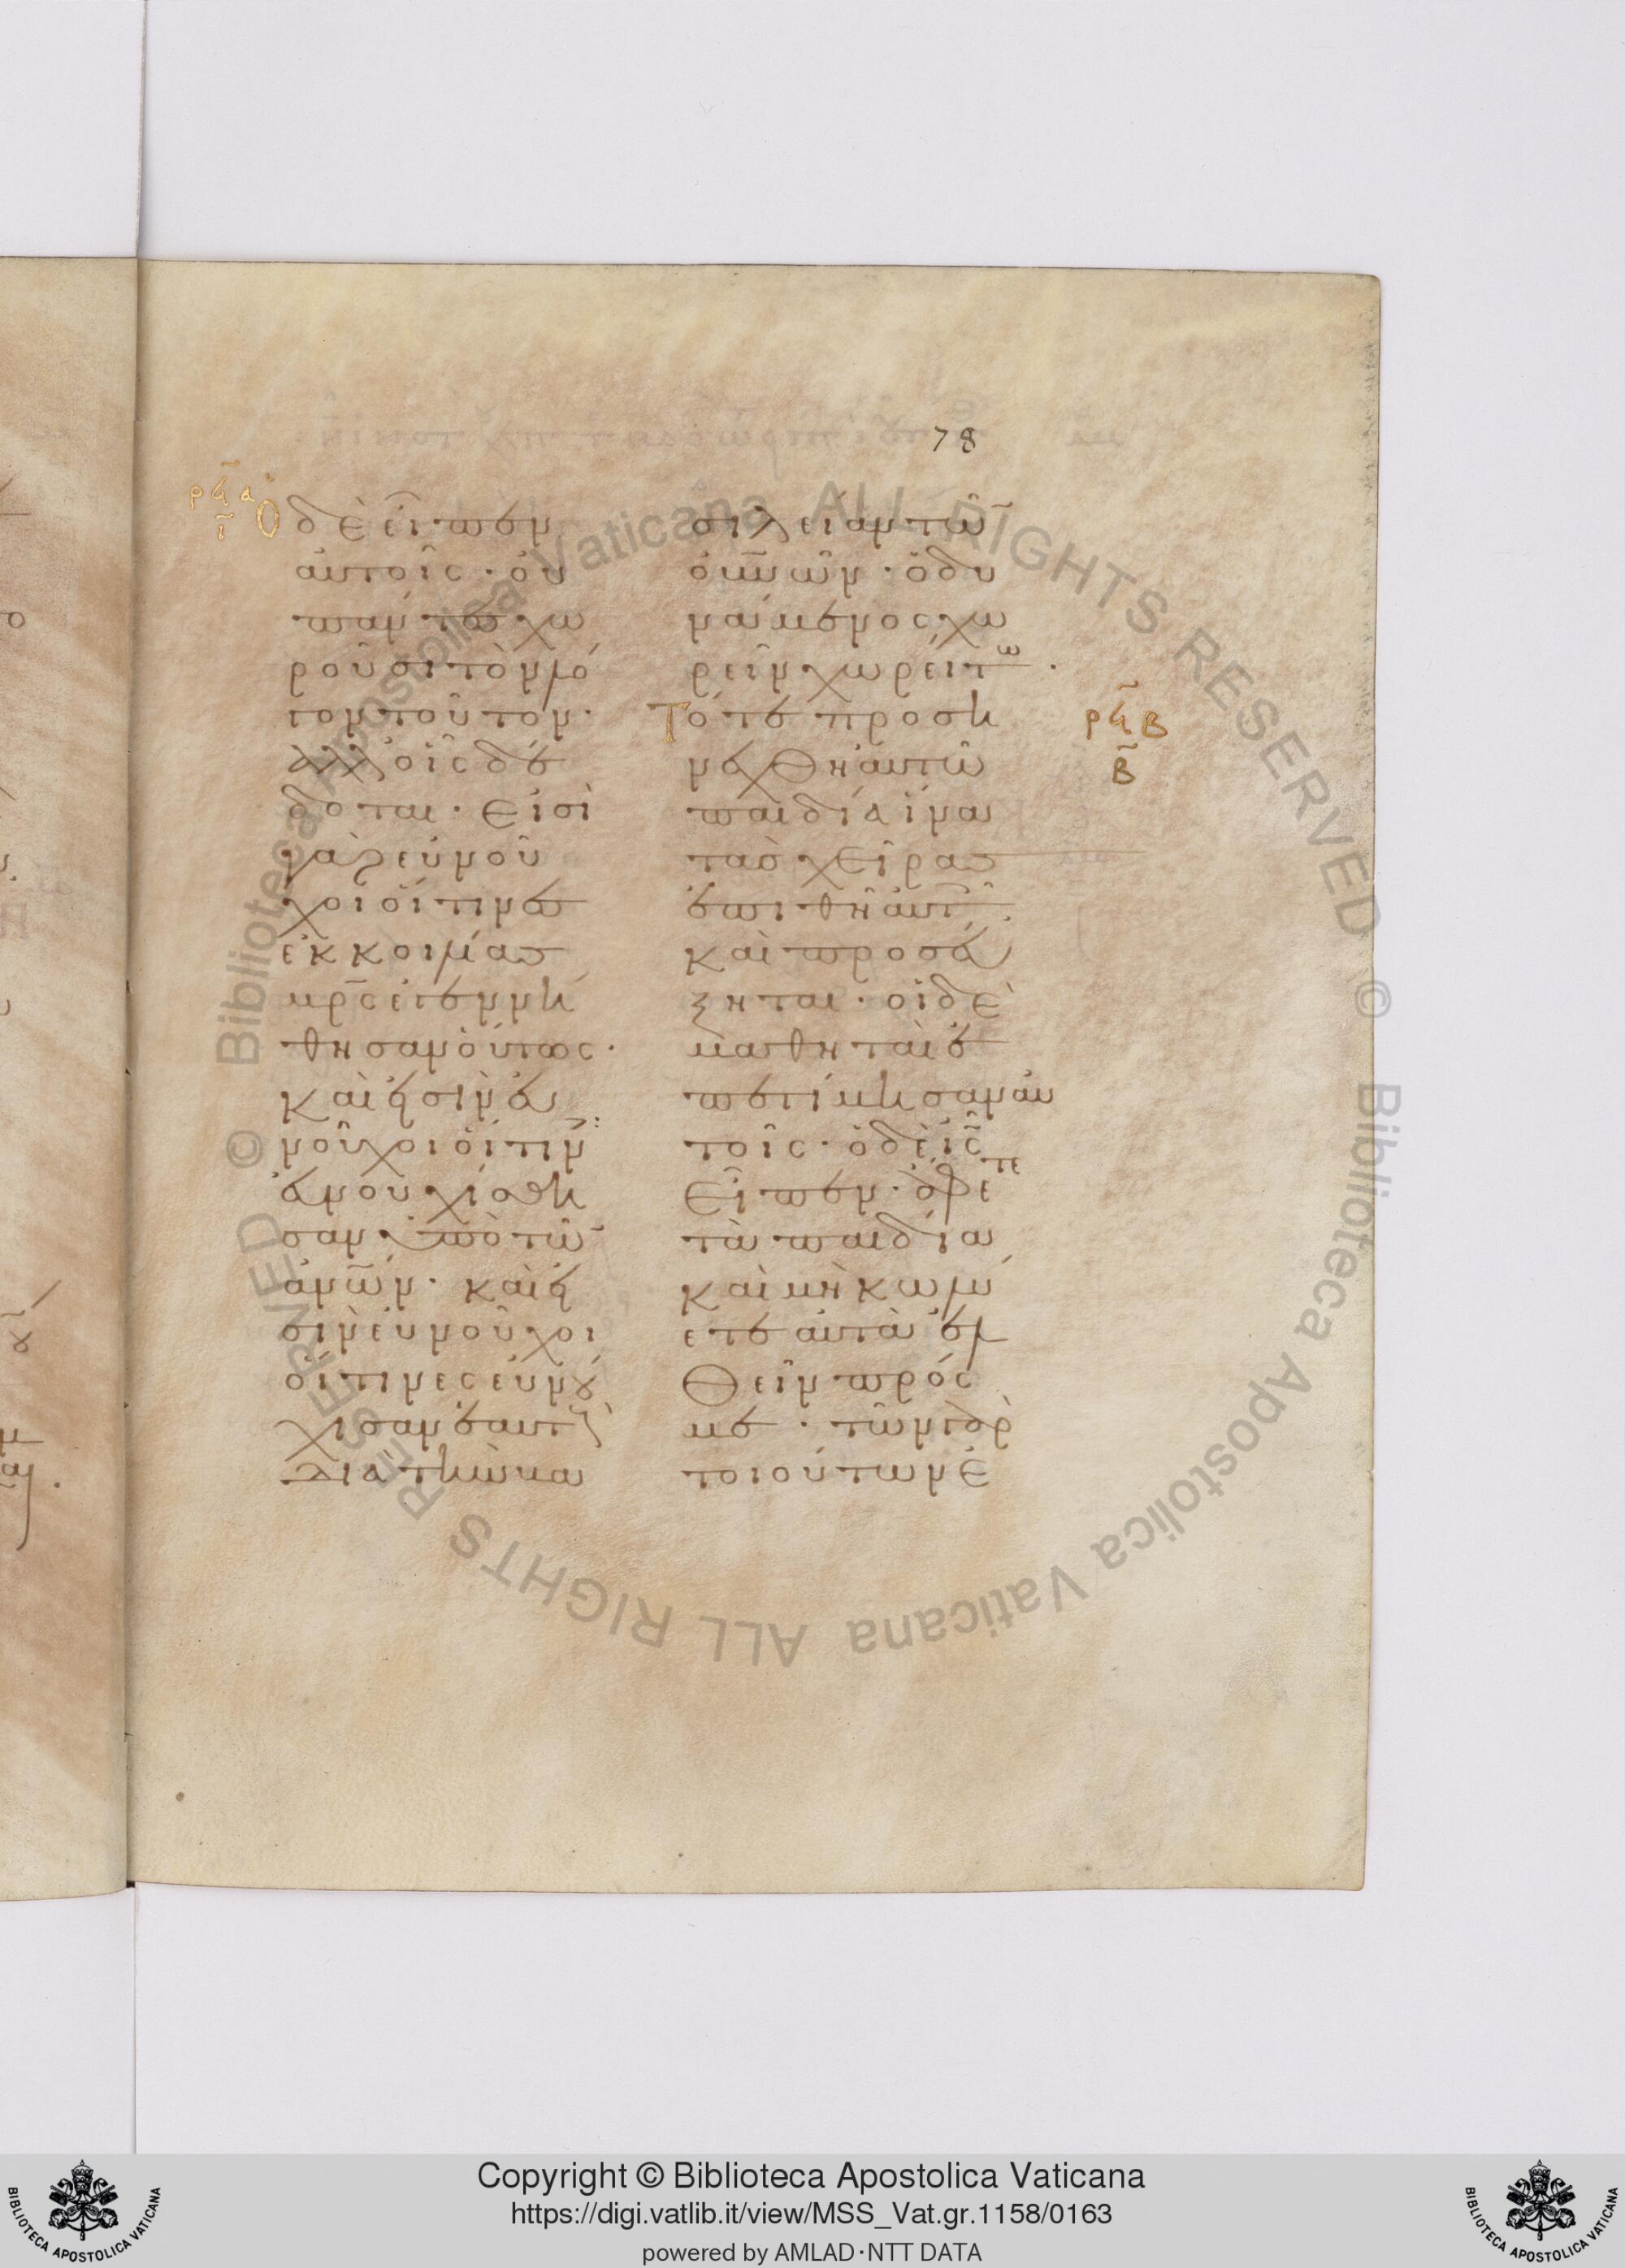 78
ρϟα
ι
Ὁ δὲ εἶπεν
αὐτοῖς· οὐ
πάντες χω
ροῦσι τὸν λό
γον τοῦτον·
ἀλλ' οἷς δέ
δοται· Εἰσὶ
γὰρ εὐνοῦ
χοι οἵτινες
ἐκ κοιλίας
μρ̅ς ἐγεννή
θησαν οὕτως·
καὶ εἰσὶν εὐ
νοῦχοι οἵτιν
εὐνουχίσθη
σαν ὑπὸ τῶ̅
ἀν̅ω̅ν· καὶ εἰ
σὶν εὐνοῦχοι
οἵτινες εὐνου
χισαν ἑαυτ
διὰ τὴν βα
σιλείαν τῶ̅
ου̅νω̅ν· ὁ δυ
νάμενος χω
ρεῖν χωρείτω·
Τότε προση
νέχθη αὐτῶ
παιδία ἵνα
τὰς χεῖρας
ἐπιθῆ αὐτ
καὶ προσεύ
ξηται· οἱ δὲ
μαθηταὶ ἐ
πετίμησαν αὐ
τοῖς· ὁ δὲ ι̅ς̅
εἶπεν· ἄφετε
τὰ παιδία
καὶ μὴ κωλύ
ετε αὐτὰ ἐλ
θεῖν πρός
με· τῶν γὰρ
τοιούτων ἐ
ρϟβ
β
Copyright © Biblioteca Apostolica Vaticana
https://digi.vatlib.it/view/MSS_Vat.gr.1158/0163
powered by AMLAD·NTT DATA
BIBLIOTECA APOSTOLICA VATICANA
BIBLIOTECA APOSTOLICA VATICANA
© Biblioteca Apostolica Vaticana ALL RIGHTS RESERVED © Biblioteca Apostolica Vaticana ALL RIGHTS RESERVED